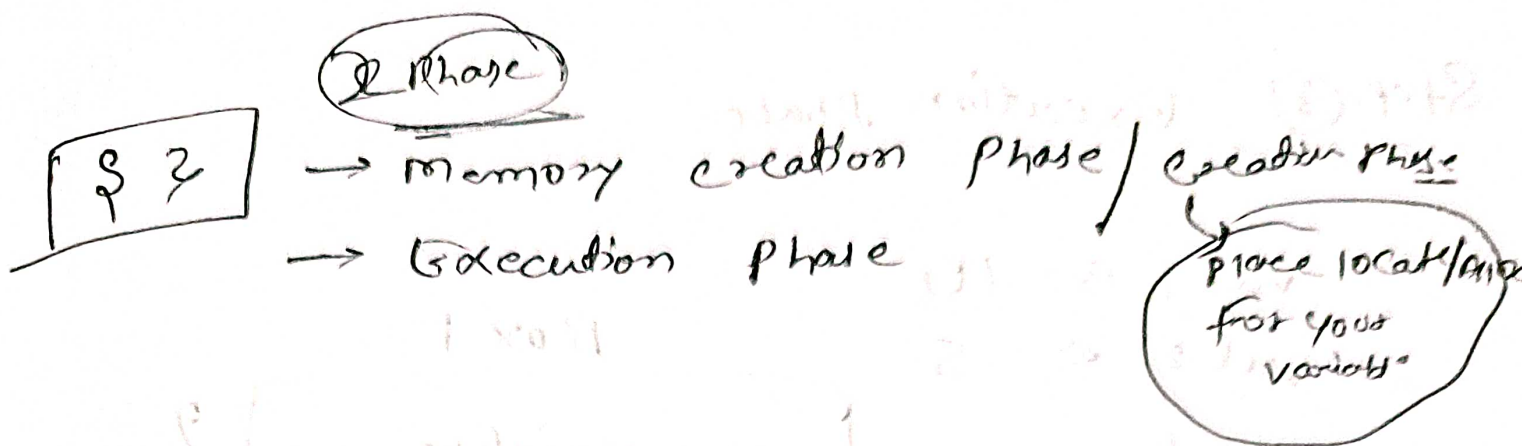 2 Phase
{ } → Memory creation Phase / creation phase
→ Execution Phase
place locate/
for your
variable